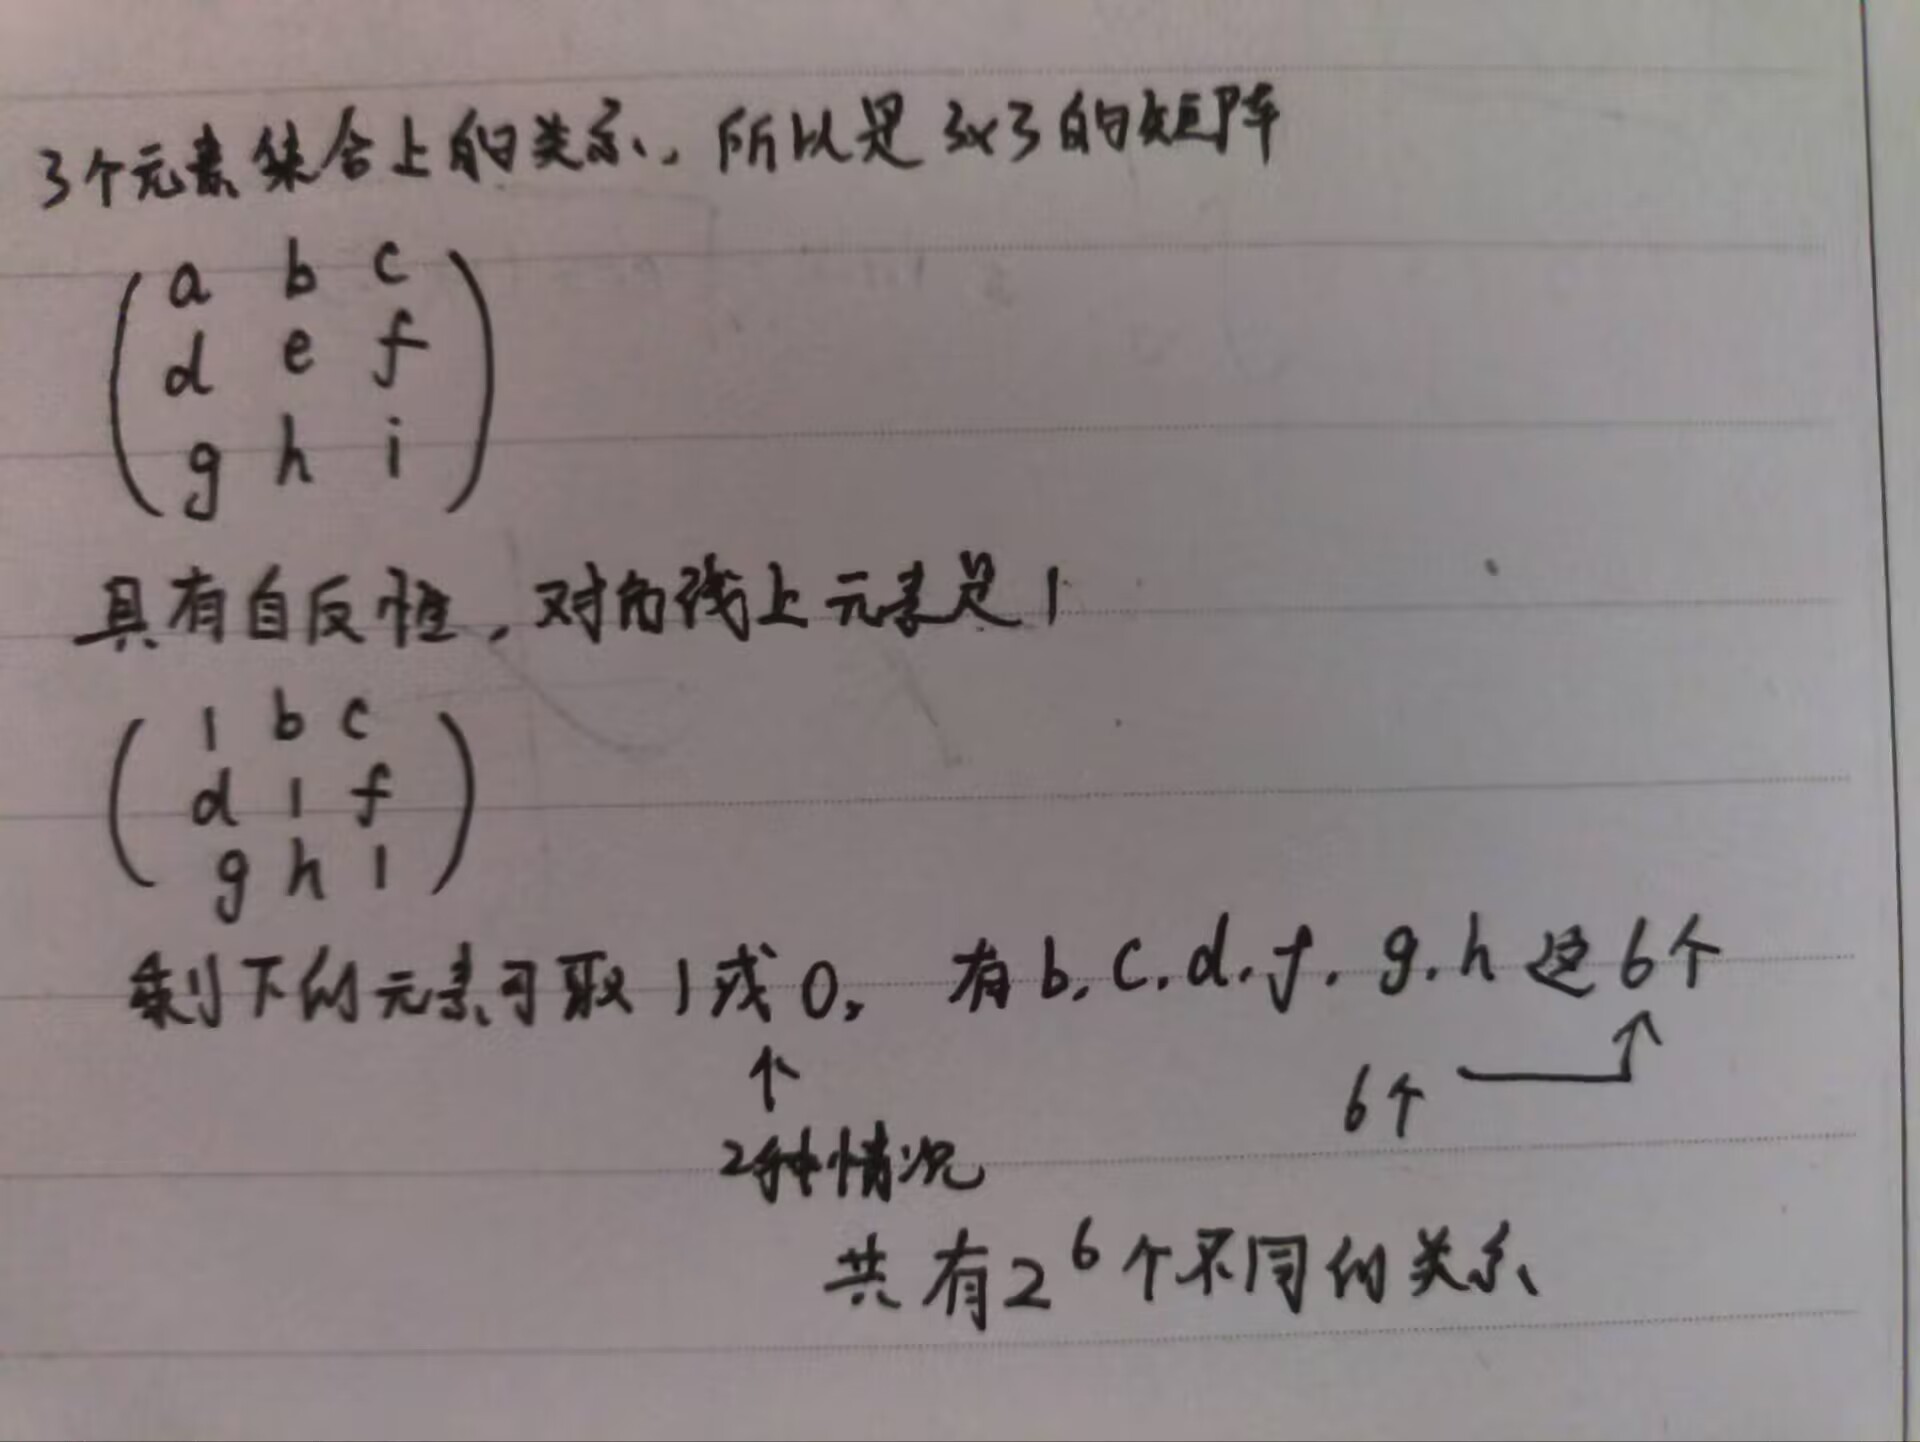 3个元素集合上的关系，所以是3x3的矩阵
a b c
d e f
g h i
具有自反性，对角线上元素是1
1 b c
d 1 f
g h 1
剩下的元素可取1或0，有b,c,d,f,g,h这6个
↑
6个
2种情况
共有2⁶个不同的关系